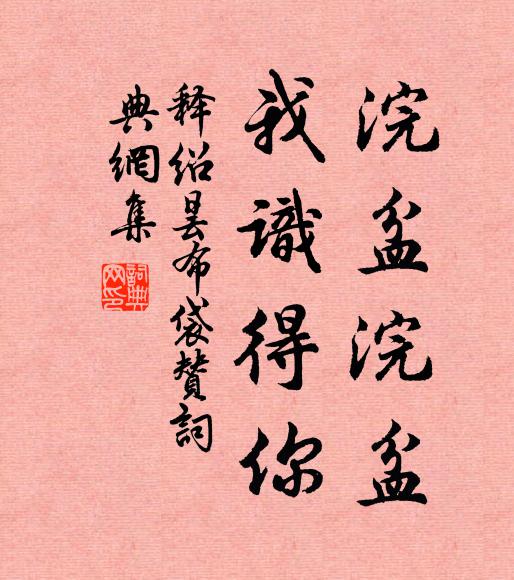 浣盆浣盆
我識得你
释绍昙布袋赞詞
典網集
詞典
网印